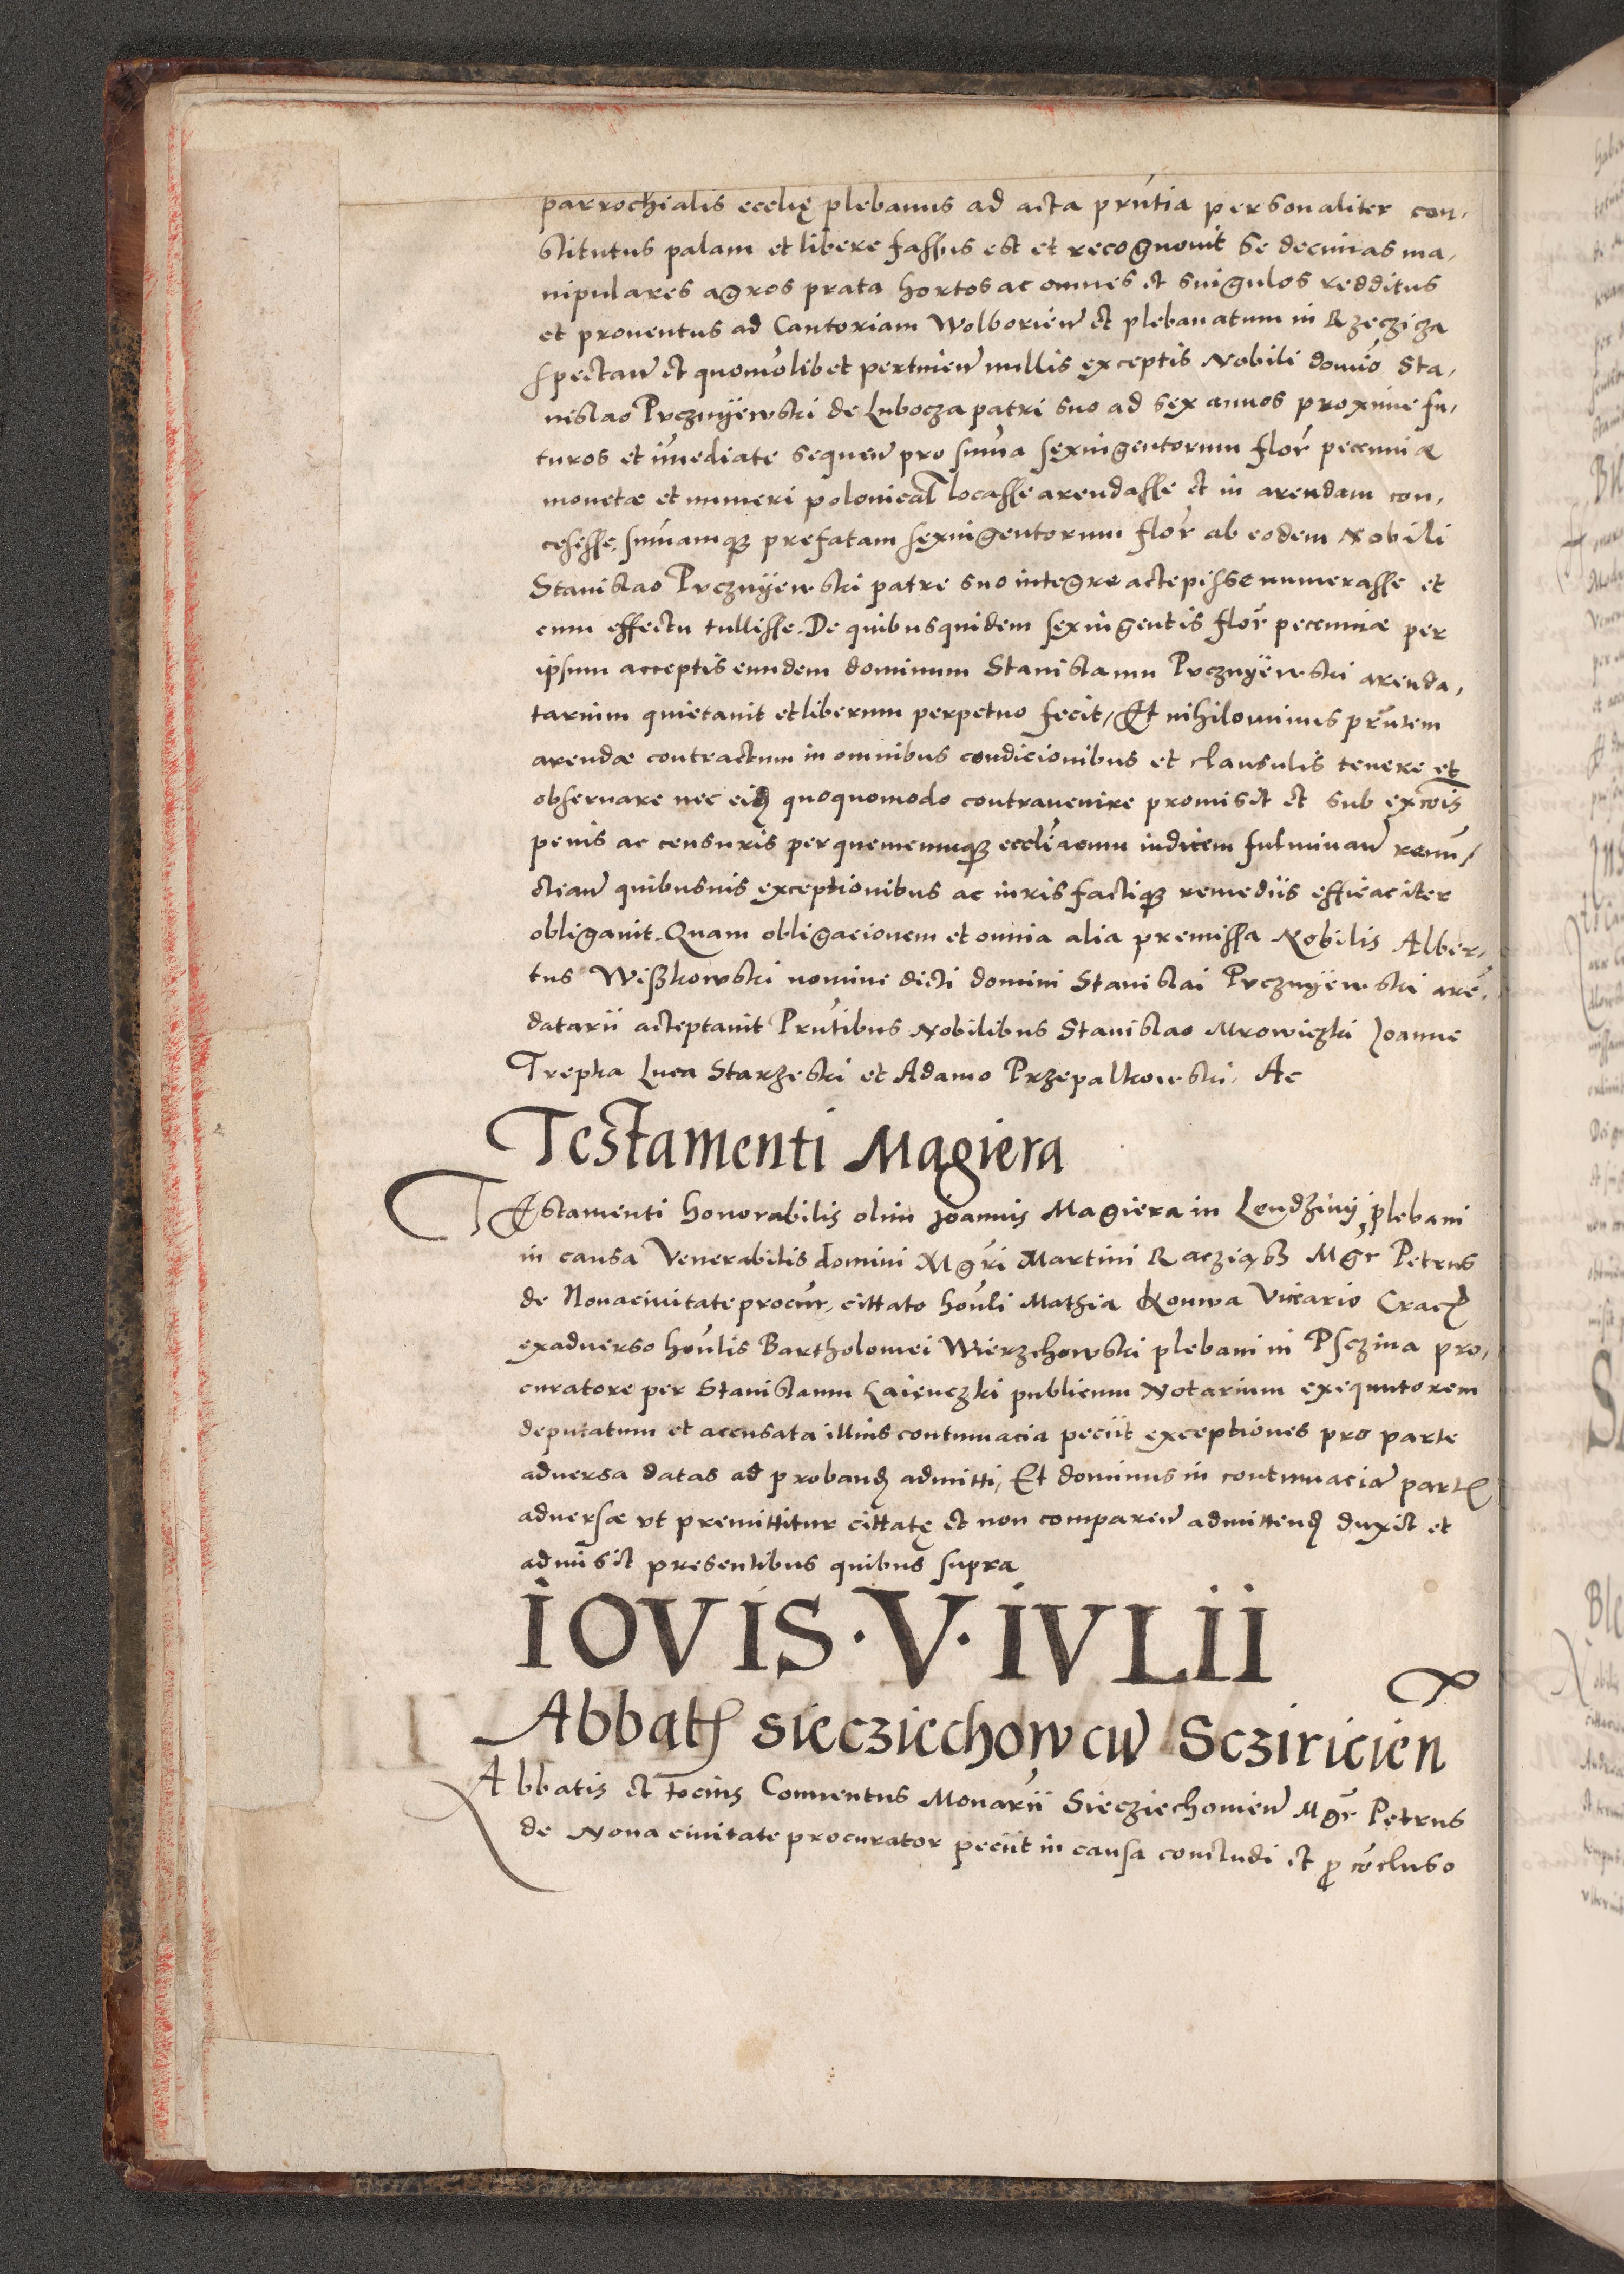 parrochialis ecclię plebanus ad acta prñtia personaliter con,
stitutus palam et libere fassus est et recognouit se decimas ma,
nipulares agros prata hortos ac omnes et singulos redditus
et prouentus ad Cantoriam Wolborien̄ et plebanatum in Rzeczicza
spectan̄ et quomolibet pertinen̄ nullis exceptis Nobili domio Sta,
nislao Puczniÿewski de Luboczapatri suo ad sex annos proxime fu,
turos et im̄ediate sequen̄ pro sum̄a sexingentorum flor̄ pecuniæ
monetæ et numeri polonical locasse arendasse et in arendam con,
cesisse, sum̄amqꝫ prefatam sexingentorum flor̄ ab eodem Nobili
Stanislao Puczniÿewski patre suo integre accepisse numerasse et
cum effectu tullisse. De quibusquidem sexingentis flor̄ pecuniæ per
ipsum acceptis eundem dominum Stanislaum Puczniÿewski arenda,
tarium quietauit et liberum perpetuo fecit, Et nihilominus prñtem
arendæ contractum in omnibus condicionibus et clausulis tenere et
obseruare nec eiꝫ quoquomodo contrauenire promisit et sub excōis
penis ac censuris per quemcunqꝫ eccleācum iudicem fulminan̄ renun̄/
ctian̄ quibusuis exceptionibus ac iuris factiqꝫ remediis efficaciter
obligauit. Quam obligacionem et omnia alia premissa Nobilis Alber,
tus Wißkowski nomine dicti domini Stanislai Puczniÿewski arē,
datarii acceptauit Prñtibus Nobilibus Stanislao Mrowiczki Joanne
Trepka Luca Starzeski et Adamo Przepalkowski. Ac
Testamenti Magiera
TEstamenti honorabilis olim Joannis Magiera in Lendziny plebani
in causa Venerabilis domini Mgr̄i Martini Racziąsz Mgr Petrus
de Nouaciuitate procur̄, cittato hon̄li Mathia Konwa Vicario Crac̄
exaduerso hon̄lis Bartholomei Wierzchowski plebani in Psczina pro,
curatore per Stanislaum Laienczki publicum Notarium exequutorem
deputatum et accusata illius contumacia peciit exceptiones pro parte
aduersa datas ad proband admitti, Et dominus in contumaciā partꝭ
aduersæ vt premittitur cittatę et non comparen̄ admittend duxit et
admisit presentibus quibus supra
IOVIS · V · IVLII
Abbatꝭ sieczicchowcn̄ Scziricien
Abbatis et tocius Conuentus Monar̄ii Siecziechouien̄ Mgr̄ Petrus
de Noua ciuitate procurator peciit in causa concludi et ꝓ cōcluso